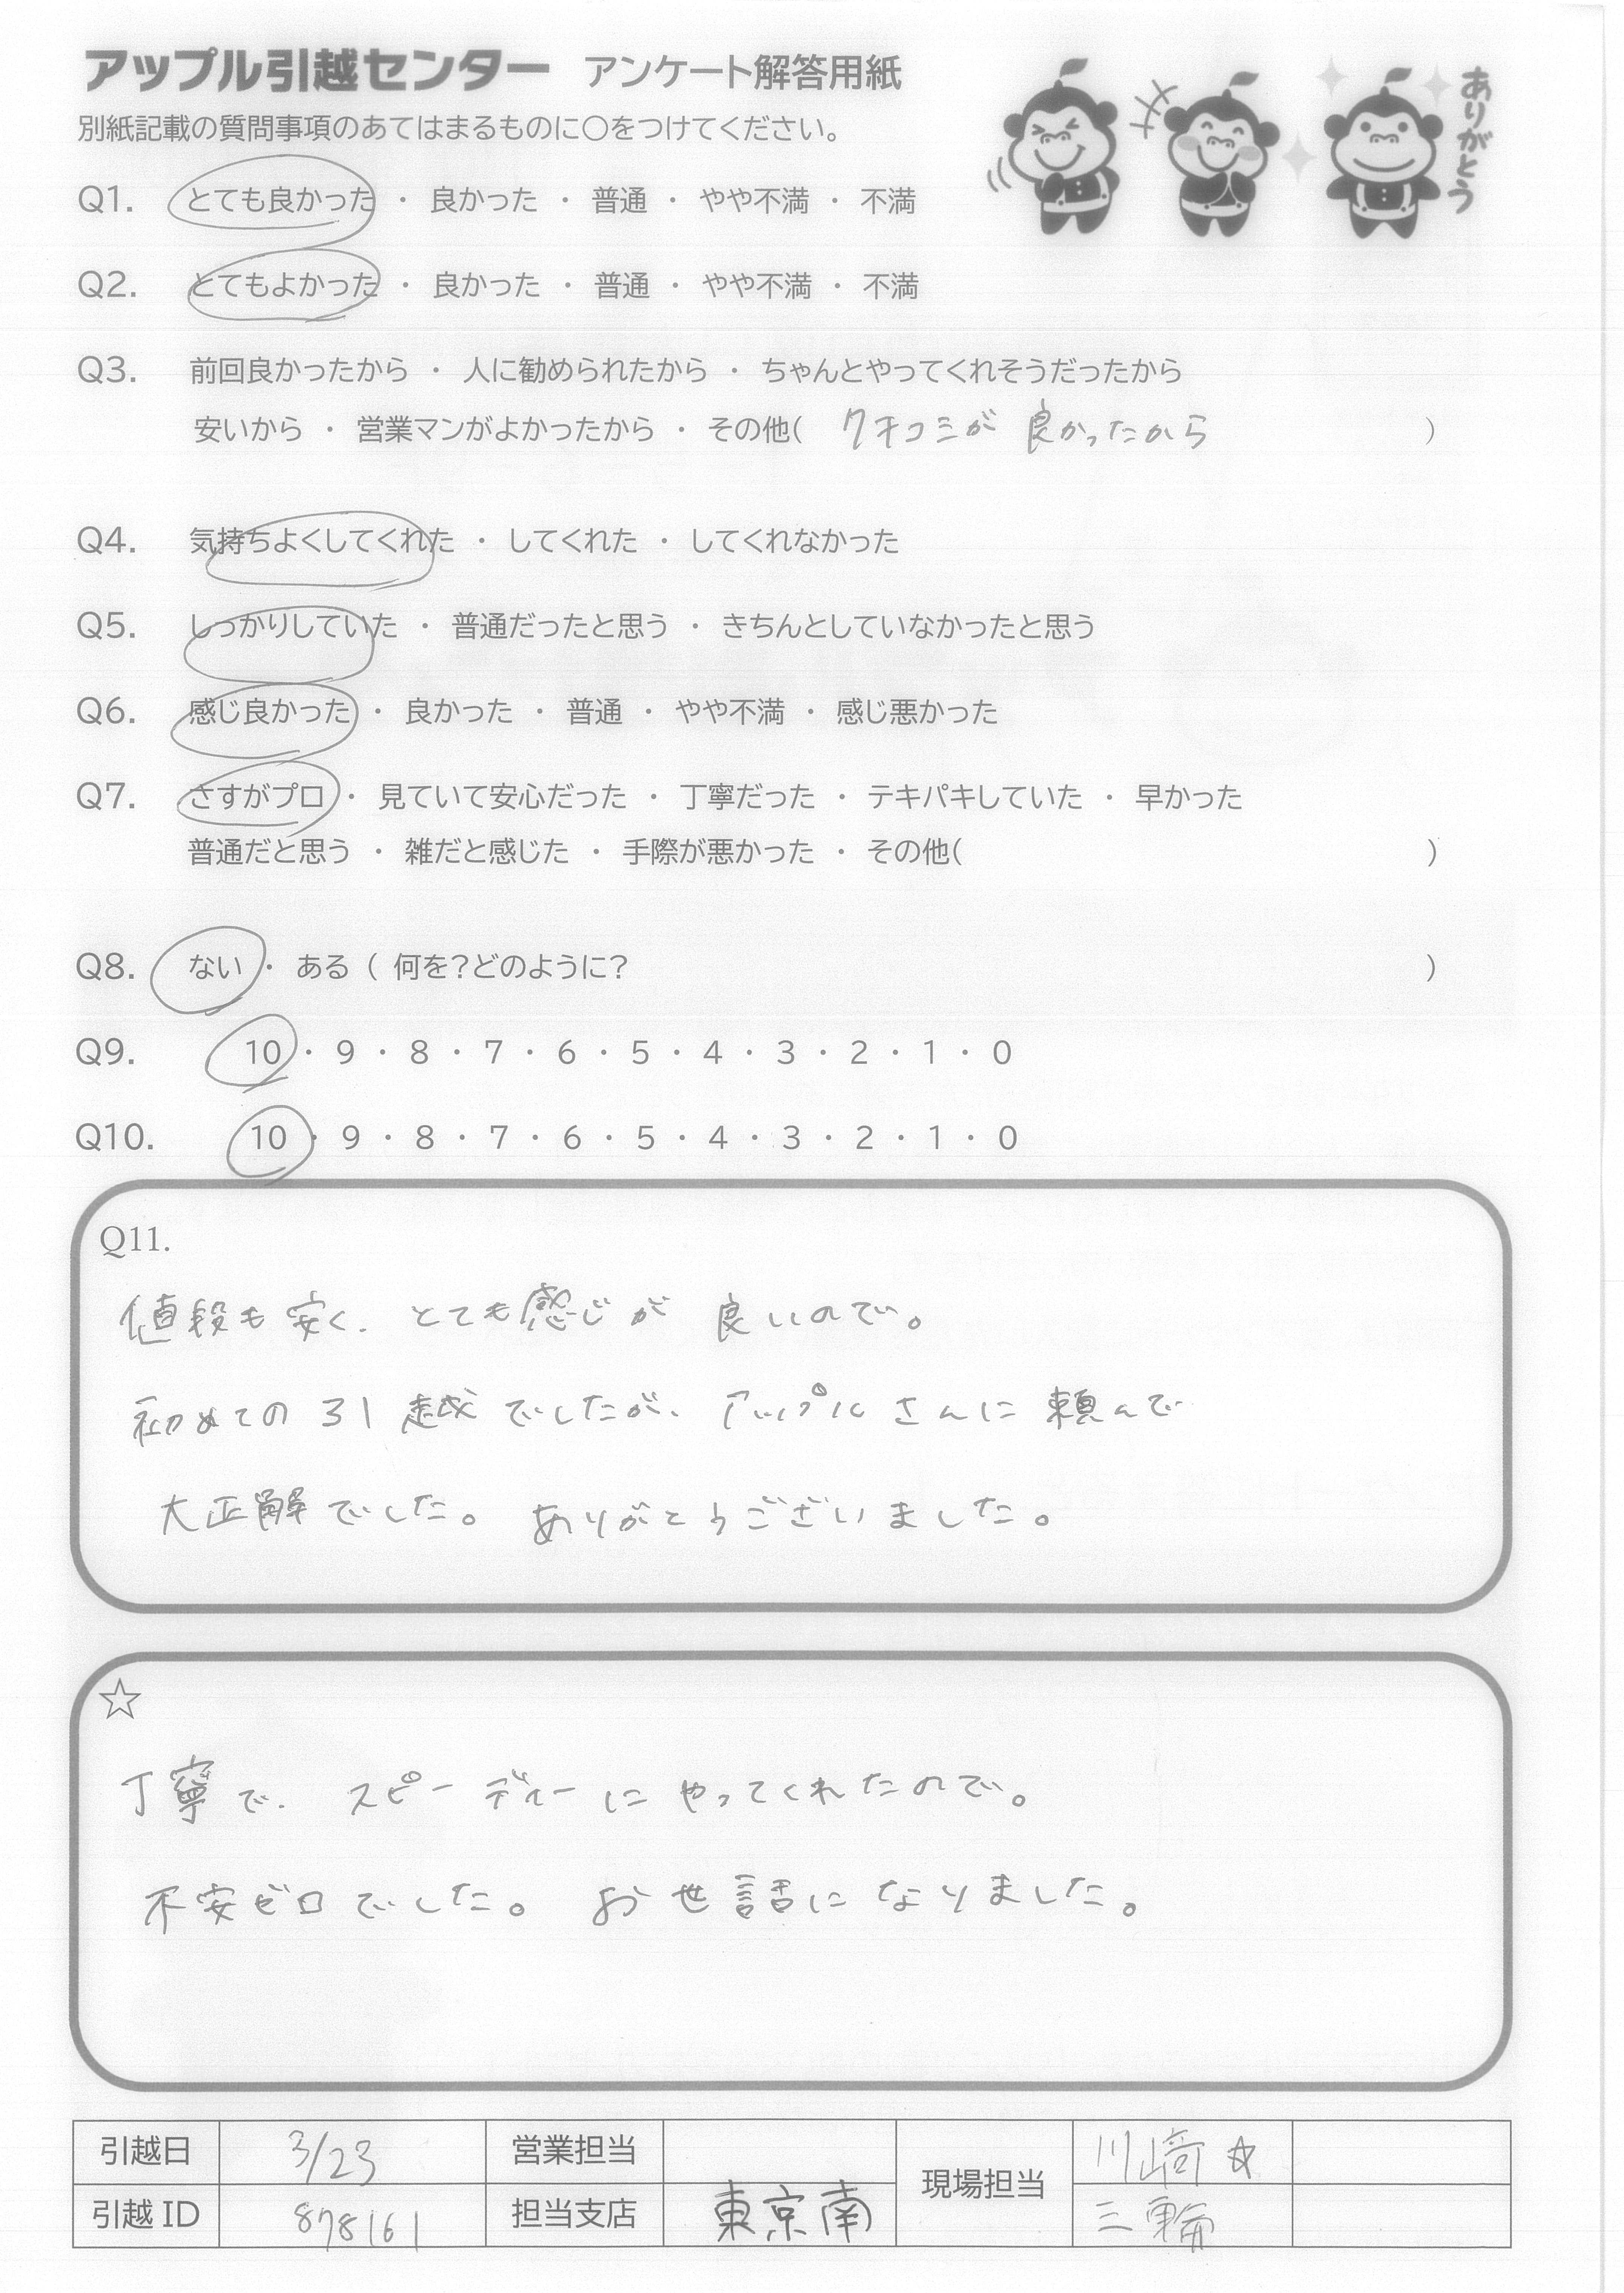 アップル引越センター アンケート解答用紙
ありがとう
別紙記載の質問事項のあてはまるものに○をつけてください。
Q1. とても良かった ・ 良かった ・ 普通 ・ やや不満 ・ 不満
Q2. とてもよかった ・ 良かった ・ 普通 ・ やや不満 ・ 不満
Q3. 前回良かったから ・ 人に勧められたから ・ ちゃんとやってくれそうだったから
安いから ・ 営業マンがよかったから ・ その他( クチコミが 良かったから )
Q4. 気持ちよくしてくれた ・ してくれた ・ してくれなかった
Q5. しっかりしていた ・ 普通だったと思う ・ きちんとしていなかったと思う
Q6. 感じ良かった ・ 良かった ・ 普通 ・ やや不満 ・ 感じ悪かった
Q7. さすがプロ ・ 見ていて安心だった ・ 丁寧だった ・ テキパキしていた ・ 早かった
普通だと思う ・ 雑だと感じた ・ 手際が悪かった ・ その他( )
Q8. ない ・ ある ( 何を?どのように? )
Q9. 10 ・ 9 ・ 8 ・ 7 ・ 6 ・ 5 ・ 4 ・ 3 ・ 2 ・ 1 ・ 0
Q10. 10 ・ 9 ・ 8 ・ 7 ・ 6 ・ 5 ・ 4 ・ 3 ・ 2 ・ 1 ・ 0
Q11.
値段も安く、とても感じが 良いので。
初めての 引越でしたが、アップルさんに 頼んで
大正解でした。 ありがとうございました。
☆
丁寧で、スピーディーに やってくれたので。
不安ゼロでした。 お世話に なりました。
引越日 3/23 営業担当 現場担当 川﨑 ☆
引越 ID 878161 担当支店 東京南 三輪